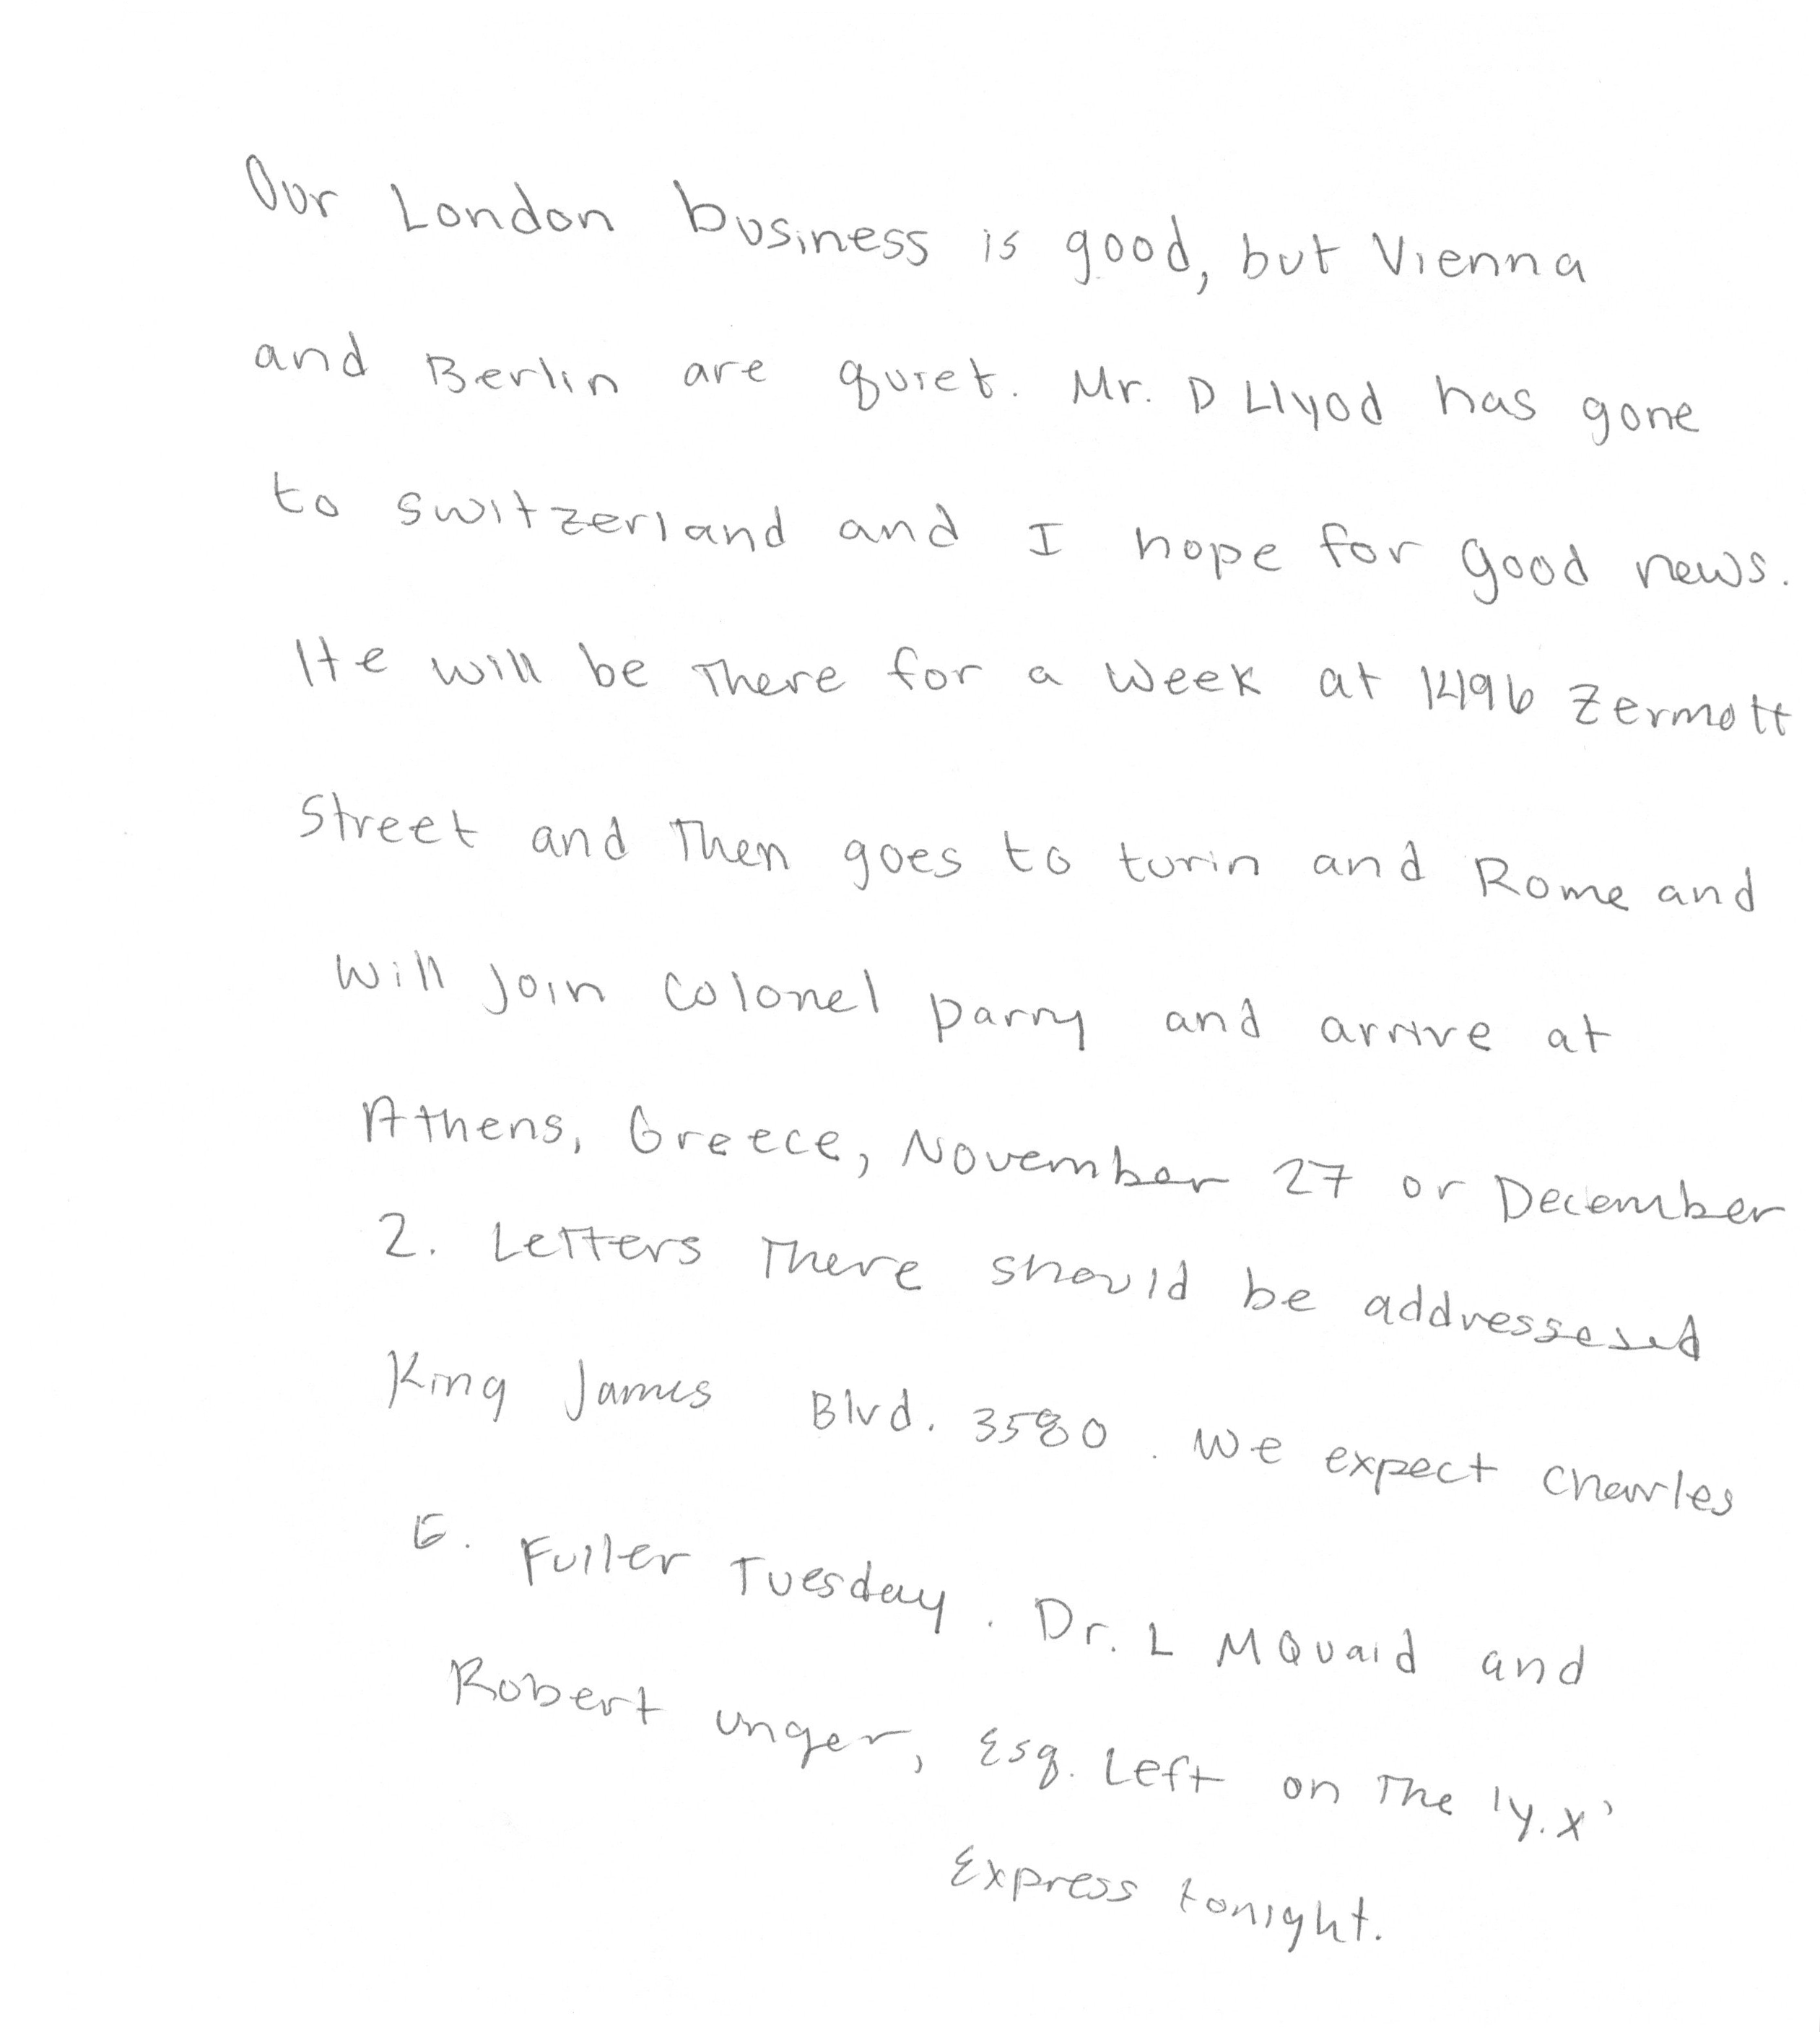 Our London business is good, but Vienna
and Berlin are quiet. Mr. D Llyod has gone
to switzerland and I hope for good news.
He will be There for a week at 1496 Zermott
Street and Then goes to turin and Rome and
will join colonel parry and arrive at
Athens, Greece, November 27 or December
2. Letters There should be addressesed
King James Blvd. 3580. We expect Charles
E. Fuller Tuesday. Dr. L MQuaid and
Robert unger, Esq. Left on The 'y.x'
Express tonight.